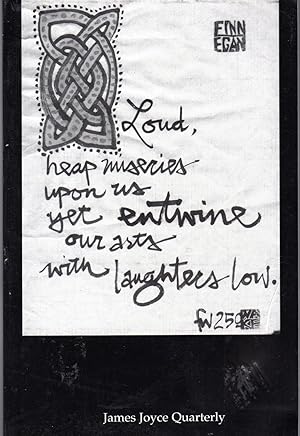 FINN
EGAN
Loud,
heap miseries
upon us
yet entwine
our arts
with laughters low.
fw 259
WA
KE
James Joyce Quarterly